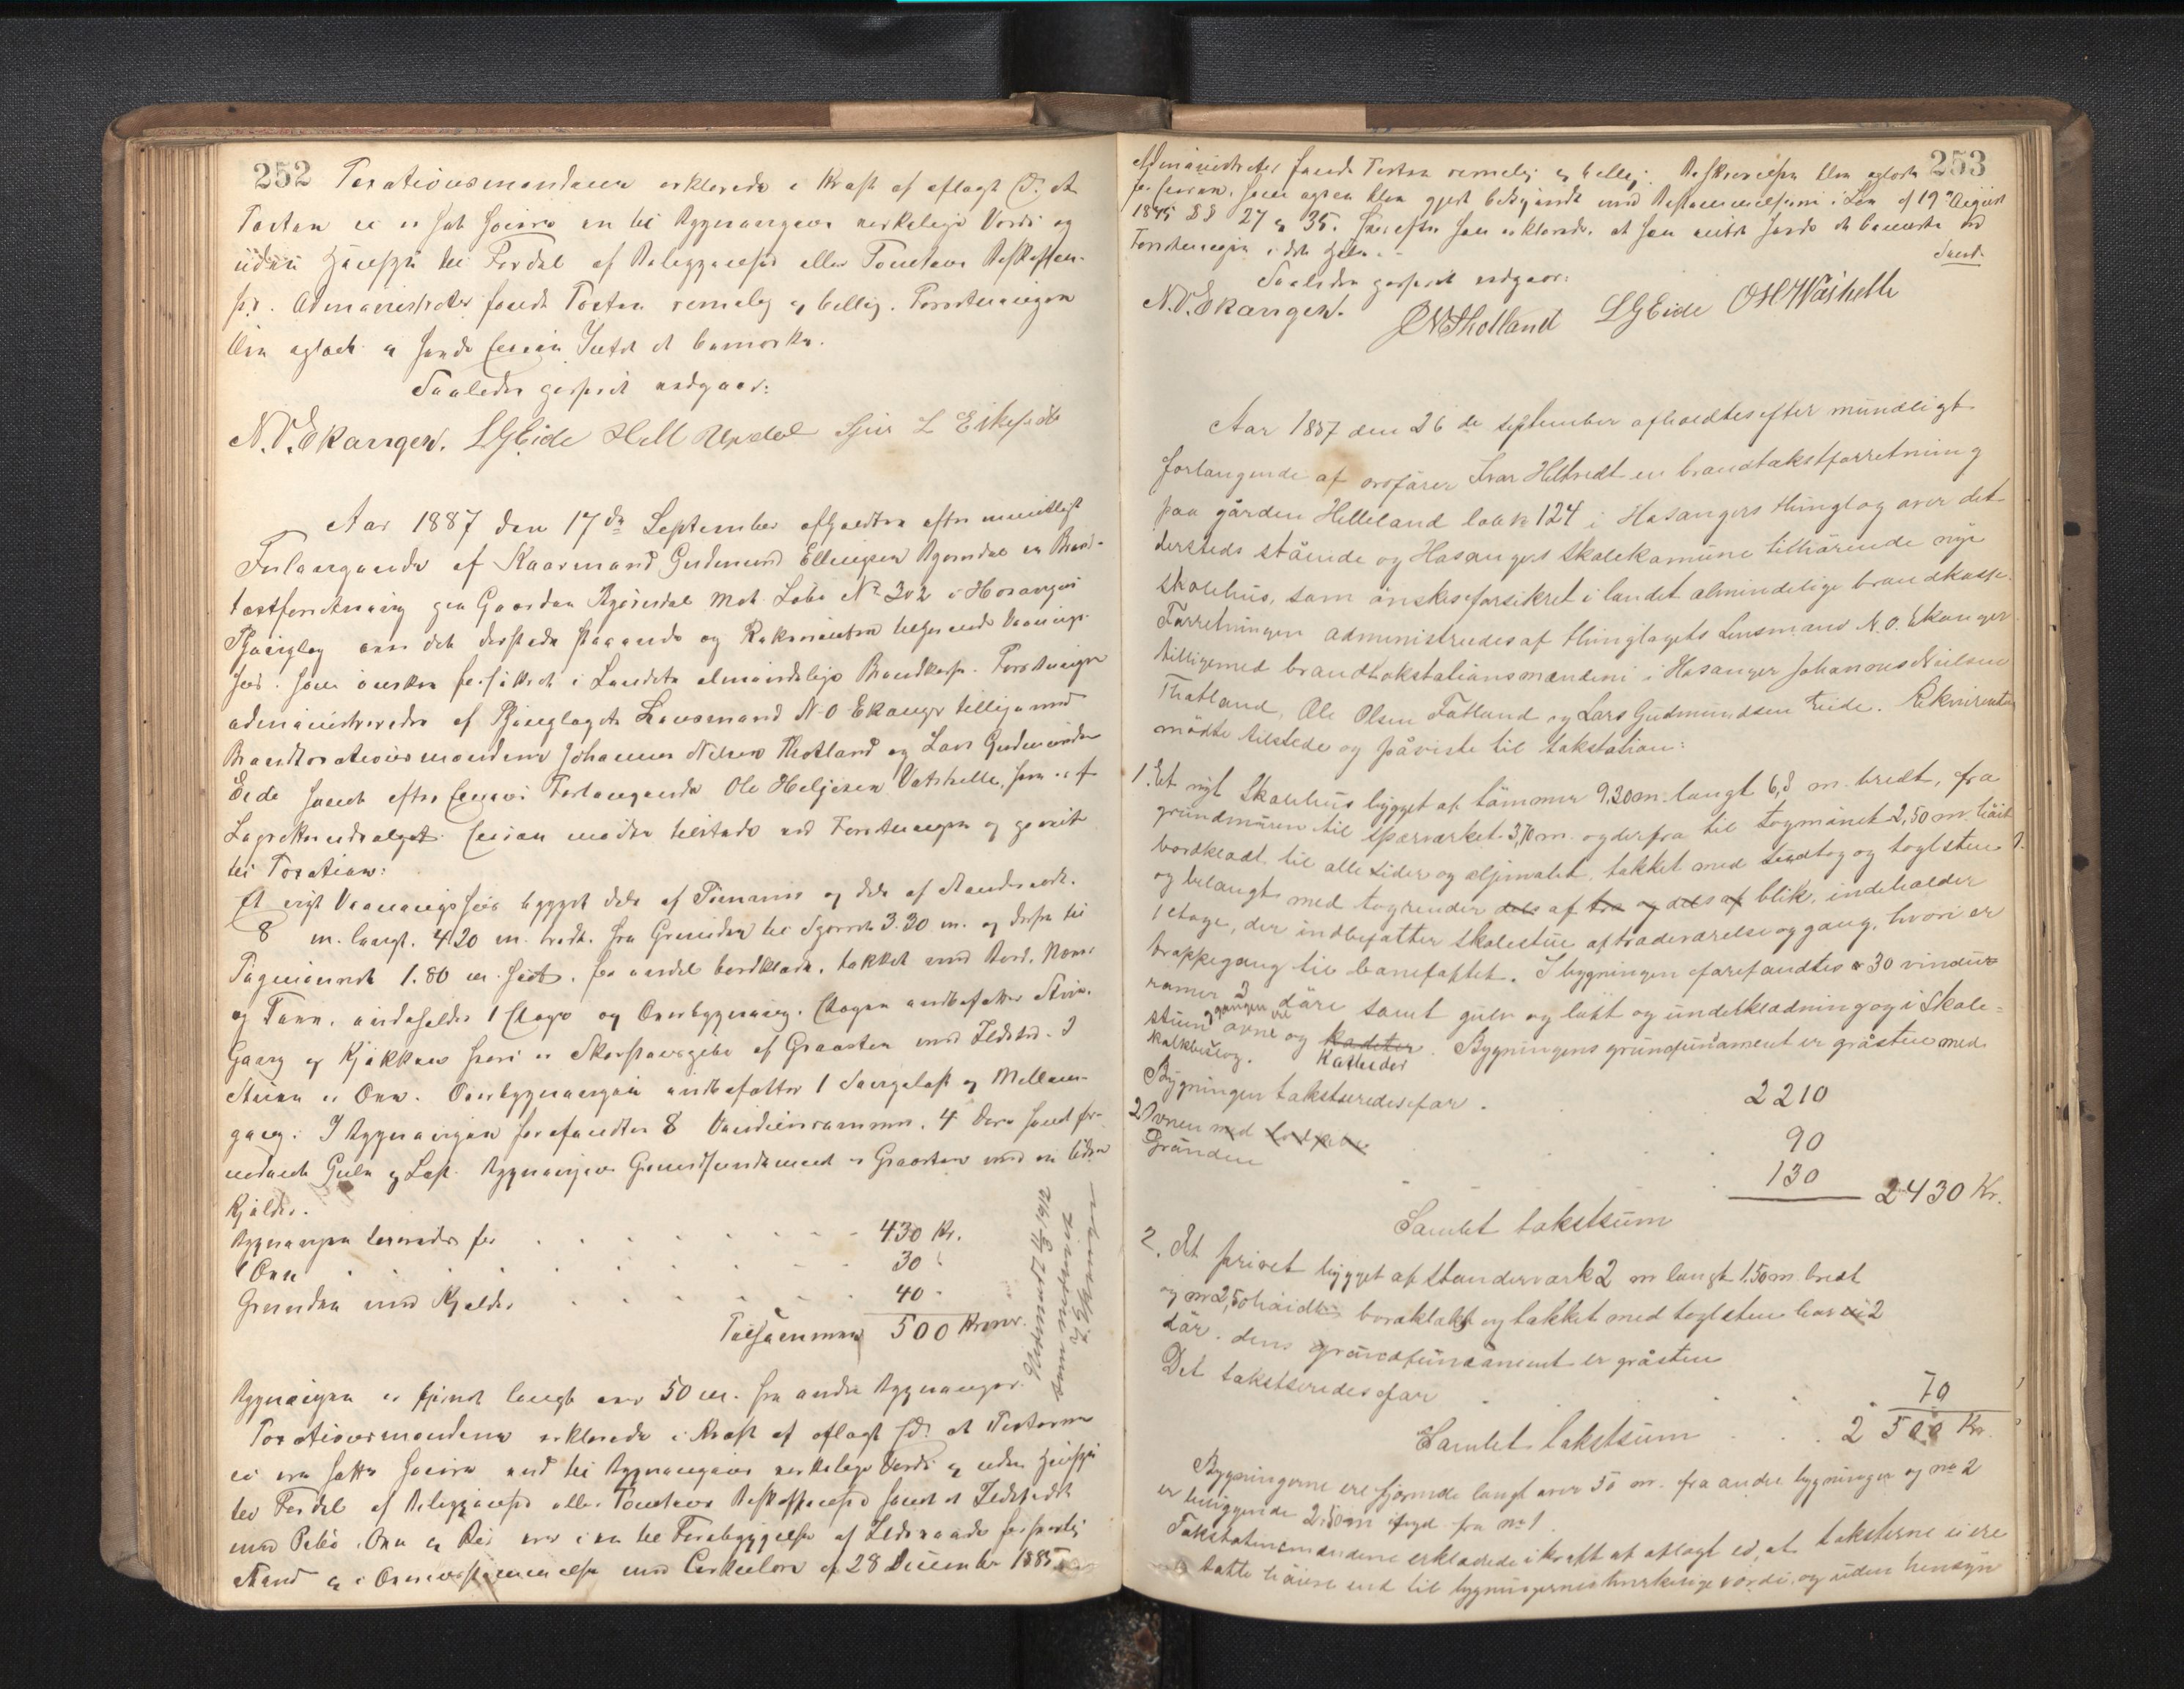 252
Taxationsmændene erklærede i Kraft af aflagt Ed, at
Taxten ei er sat høiere en til Bygningens verkelige Værdi og
uden Hensyn til Fordel af Beliggenhed eller Tomtens Beskaffen-
hed. Administrator fandt Taxten rimelig og billig. Forretningen
blev oplæst og havde Eieren Intet at bemærke.
Saaledes passeret vidgaar:
N. O. Ekanger. L G Eide
Aar 1887 den 17de September afholdtes efter mundtligt
Forlangende af Kaarmand Gudmund Ellingsen Bysendal en Brand-
taxtforretning paa Gaarden Matr. Løbe No 302 i Hosangers
Thinglag over det dersteds staaende og Rekvirenten tilhørende Vaanings-
hus, som ønskes forsikret i Landets almindelige Brandkasse. Forretningen
administreredes af Thinglagets Lensmand N. O. Ekanger tilligemed
Brandtaxationsmændene Johannes Nilsen Thotland og Lars Gudmundsen
Eide samt efter Eierens Forlangende Ole Heljesen Vatshelle, som er af
Lagrettemandsalget. Eieren mødte tilstede ved Forretningen og paaviste
til Taxation:
Et nyt Vaaningshus bygget dels af Tømmer og dels af Standverk.
8 m. langt. 4.20 m. bredt. fra Grunden til Sperret 3.30 m. og derfra til
Tagmønet 1.80 m. høit, for en del bordklædt, tækket med Bord, Næver
og Tørv, indeholder 1 Etage og Overbygning. Etagen indbefatter Stue,
Gang og Kjøkken hvori er Skorstenspibe af Graasten med Ildsted. I
Stuen er Ovn. Overbygningen indbefatter 1 Sængeloft og Mellem-
gang. I Bygningen forefandtes 8 Vinduesrammer, 4 Døre samt for-
nødent Gulv og Loft. Bygningens Grundfundament er Graasten med en liden
Kjælder.
Bygningen taxeredes for . . . . . . . . 430 Kr.
1 Ovn . . . . . . . . 30 "
Grunden med Kjælder . . . . . . 40 "
Tilsammen 500 Kroner.
Bygningen er fjernet langt over 50 m. fra andre Bygninger.
Taxationsmændene erklærede i Kraft af aflagt Ed, at Taxterne
ei ere satte høiere end til Bygningens verkelige Værdi og uden Hensyn
til Fordel af Beliggenhed eller Tomtens Beskaffenhed samt at Ildstedet
med Pibe, Ovn og Rør var i en til Forebyggelse af Ildsvaade forsvarlig
Stand og i Overensstemmelse med Cirkulære af 28 December 1885
1912
253
Administrator fandt Taxten rimelig og billig. Beskrivelsen blev oplæst
for Eieren, som ogsaa blev gjort bekjendt med Bestemmelserne i Lov af 19de August
1845 §§ 27 og 35. Hvorefter han erklærede, at han intet havde at bemærke ved
Forretningen i det Hele. –
Saaledes passeret vidgaar:
N. O. Ekanger. J N Thotland L G Eide O H Watshelle
Aar 1887 den 26de September afholdtes efter mundligt
forlangende af ordfører Ivar Helbredt en brandtakstforretning
paa gården Helleland løb No 124 i Hosangers thinglag over det
dersteds stående og Hosangers skolekomune tilhørende nye
skolehus, som ønskes forsikret i landet almindelige brandkasse.
Forretningen administredes af thinglagets lensmand N. O. Ekanger
tilligemed brandtakstationsmændene i Hosanger Johannes Nielsen
Thotland, Ole Olsen Fatland og Lars Gudmundsen Eide. Rekvirenten
mødte tilstede og påviste til takstation:
1. Et nyt skolehus bygget af tømmer 9,30 m. langt 6,8 m. bredt, fra
grundmuren til sparværket 3,70 m. og derfra til tagmønet 2,50 m. høit
bordklædt til alle sider og oljemalet, takket med tagsten
og belangt med tagrender dels af træ og dels af blik, indeholder
1 etage, der indbefatter skolestue aftrædeværelse og gang, hvori er
trappegang til loftet. I bygningen forefandtes 30 vindus-
ramer 3 døre samt gulv og loft og underklædning og i skole-
stuen ovne og kadeter. Bygningens grundfundament er gråsten med
kalkbeslag. Kakkeder
Bygningen takstseredes for . 2210
2 Ovnen med . . . 90
Grunden . . . 130
Samlet takstsum 2430 Kr.
2. Et privet bygget af standerværk 2 m langt 1,50 m. bredt
og m 2,50 høidt bordklædt og takket med taglsten har 2
dør. dens grundfundament er gråsten
Det takstseredes for . . . 70
Samlet takstsum . . . 2500 Kr.
Bygningerne ere fjernede langt over 50 m. fra andre bygninger og no 2
er beliggende 2,50 m fra no 1.
Takstationsmændene erklærede i kraft af aflagt ed, at taksterne ei ere
satte høiere end til bygningernes virkelige værdi, og uden hensyn